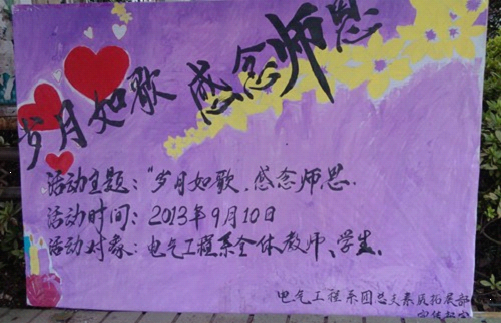 岁月如歌 感念师恩
活动主题："岁月如歌，感念师恩．
活动时间：2013年9月10日
活动对象：电气工程系全体教师、学生．
电气工程系团总支素质拓展部
宣传部宣